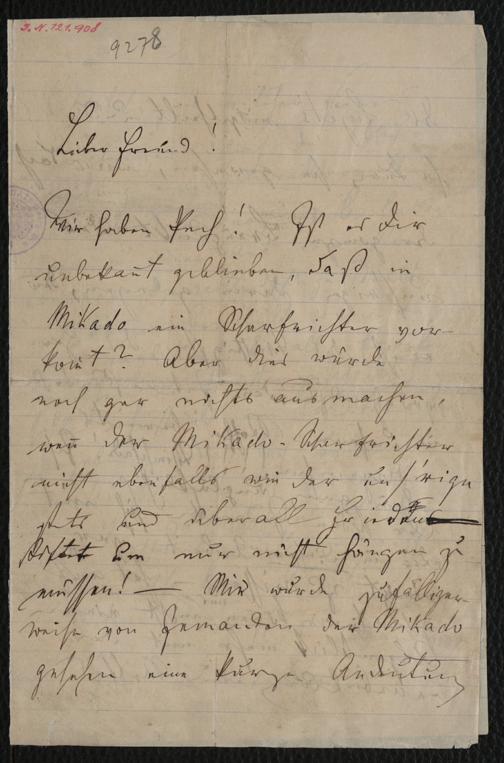 I.N. 121.908
9278
Lieber Freund!
Wir haben Pech! Ist es Dir
unbekan̄t geblieben, daß in
Mikado ein Scharfrichter vor-
kom̄t? Aber dies würde
noch gar nichts ausmachen,
wen̄ der Mikado-Scharfrichter
nicht ebenfalls wie der uns'rige
stets und überall Frieden
stiftet um nur nicht hängen zu
müssen! — Mir wurde zufälliger
weise von Jemanden der Mikado
gesehen eine kurze Andeutung